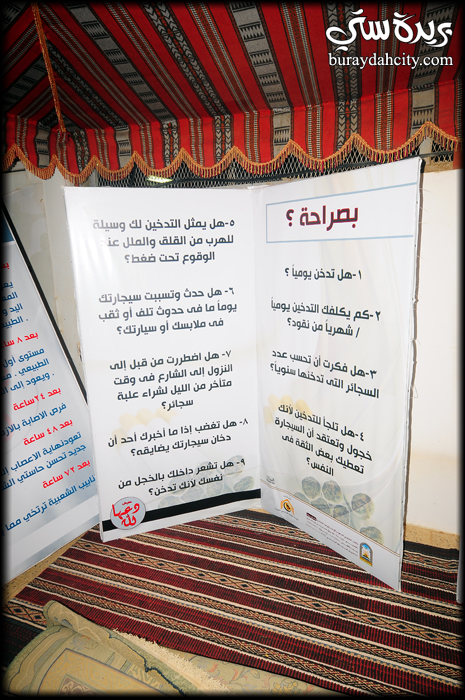 بريدة ستي
buraydahcity.com
بصراحة ؟
١-هل تدخن يومياً ؟
٢-كم يكلفك التدخين يومياً
/ شهرياً من نقود؟
٣-هل فكرت أن تحسب عدد
السجائر التى تدخنها سنوياً؟
٤-هل تلجأ للتدخين لأنك
خجول وتعتقد أن السيجارة
تعطيك بعض الثقة فى
النفس؟
٥-هل يمثل التدخين لك وسيلة
للهرب من القلق والملل عند
الوقوع تحت ضغط؟
٦- هل حدث وتسببت سيجارتك
يوماً ما فى حدوث تلف أو ثقب
فى ملابسك أو سيارتك؟
٧- هل اضطررت من قبل إلى
النزول إلى الشارع فى وقت
متأخر من الليل لشراء علبة
سجائر؟
٨- هل تغضب إذا ما أخبرك أحد أن
دخان سيجارتك يضايقه؟
٩- هل تشعر داخلك بالخجل من
نفسك لأنك تدخن؟
بعد ٨ سا
مستوى أول
الطبيعي
ويعود إلى
بعد ٢٤ساعة
فرص الاصابة بالازم
بعد ٤٨ ساعة
تعودنهاية الاعصاب
جديد تحسن حاستي الش
بعد ٧٢ ساعة
نابيب الشعبية ترتخي مما